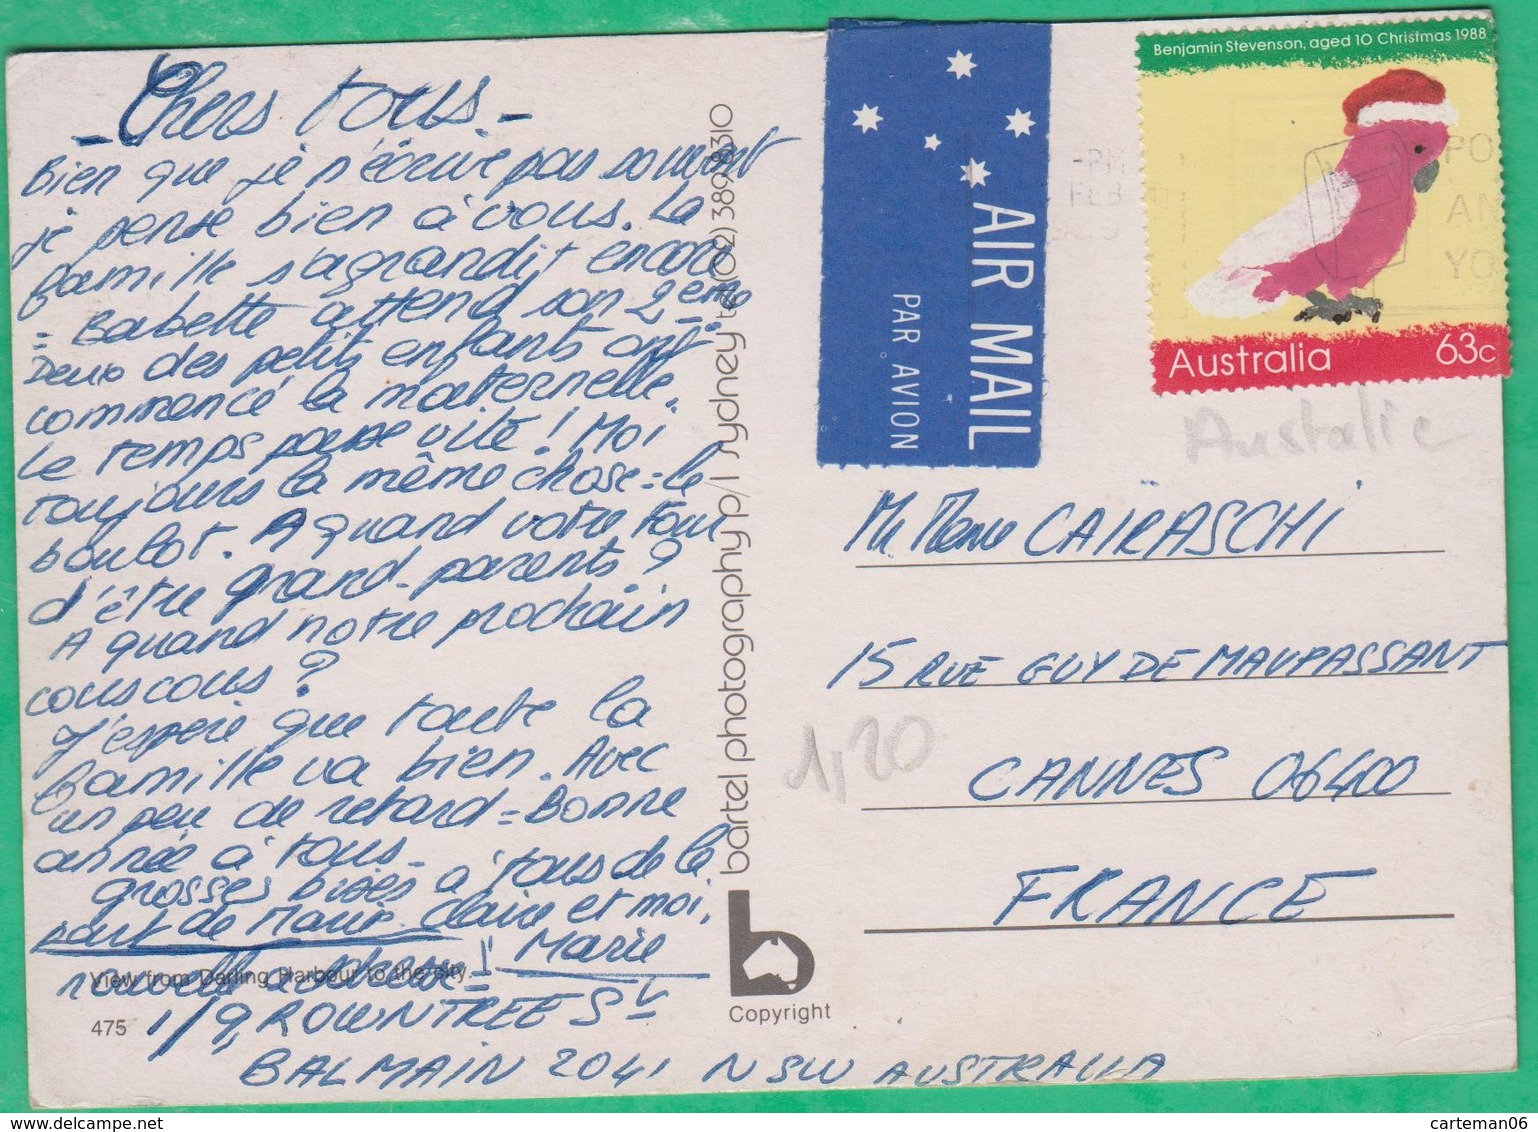 - Chers tous. -
Bien que je n'écrive pas souvent
je pense bien à vous. La
famille s'agrandit encore
= Babette attend son 2ème
Deux des petits enfants ont
commencé la maternelle.
Le temps passe vite! Moi
toujours la même chose = le
boulot. A quand votre tour
d'être grand-parents?
A quand notre prochain
couscous?
J'espère que toute la
famille va bien. Avec
un peu de retard = Bonne
année à tous -
grosses bises à tous de la
part de Marie-Claire et moi,
Marie
View from Darling Harbour to the city.
nouvelle adresse!!
475
1/9, ROWNTREE St
BALMAIN 2041 NSW AUSTRALIA
bartel photography p/l sydney tel (02) 389 8310
b
Copyright
AIR MAIL
PAR AVION
Benjamin Stevenson, aged 10 Christmas 1988
Australia 63c
-PM
FEB
PO
AN
YO
Australie
Mr Mme CAÏRASCHI
15 RUE GUY DE MAUPASSANT
1,20
CANNES 06400
FRANCE
carteman06